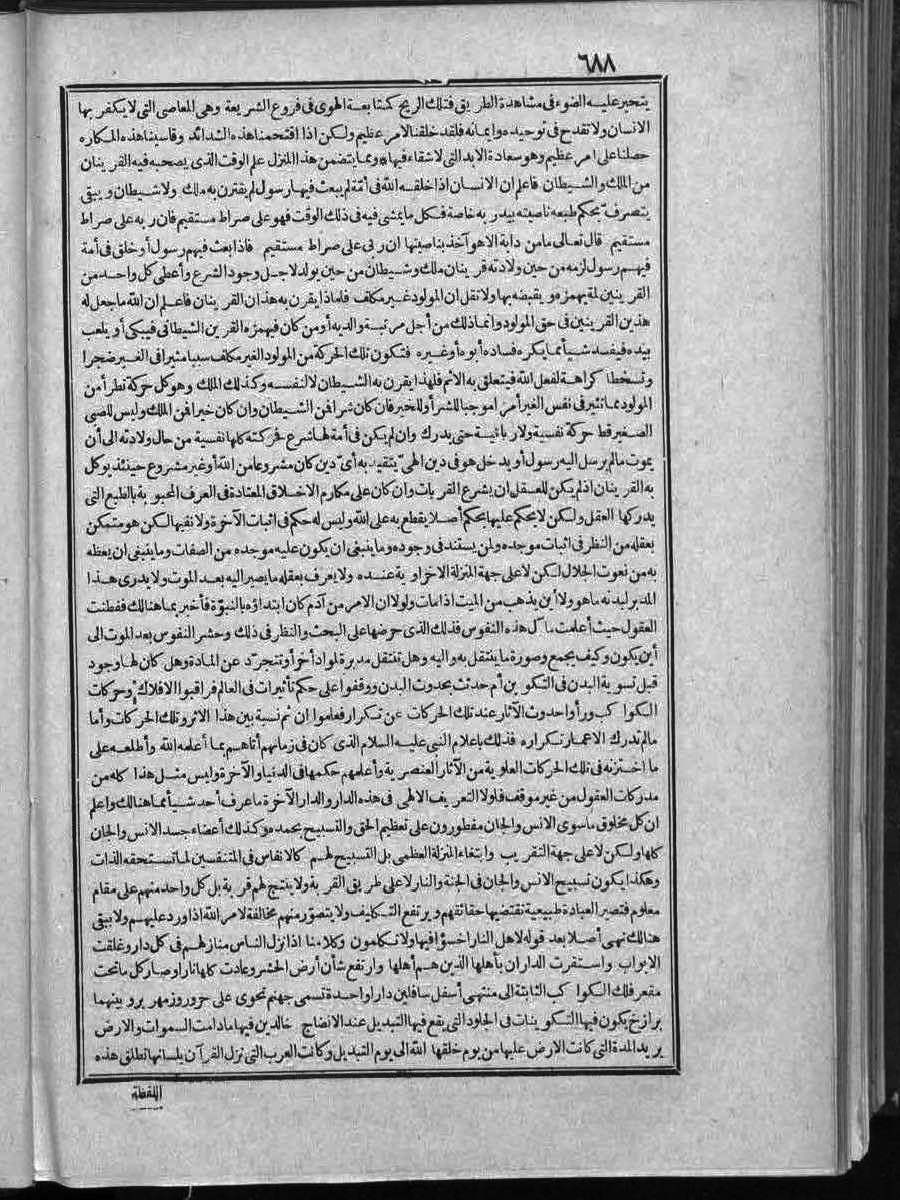 ٦٨٨
يتحير عليه الضوء فى مشاهدة الطريق فتلك الريح كمتابعة الهوى فى فروع الشريعة وهى المعاصى التى لا يكفر بها
الانسان ولا تقدح فى توحيده وايمانه فلقد خلقنا لامر عظيم ولكن اذا اقتحمنا هذه الشدائد وقاسينا هذه المكاره
حصلنا على امر عظيم وهو سعادة الابد التى لا شقاء فيها وبما يتضمن هذا المنزل علم الوقت الذى يصحبه فيه القرينان
من الملك والشيطان فاعلم ان الانسان اذا خلقه الله فى أمة لم يبعث فيها رسول لم يقترن به ملك ولا شيطان ويبقى
يتصرف بحكم طبعه ناصيته بيد ربه خاصة فكل ما يمشى فيه فى ذلك الوقت فهو على صراط مستقيم فان ربه على صراط
مستقيم قال تعالى ما من دابة الا هو آخذ بناصيتها ان ربى على صراط مستقيم فاذا بعث فيهم رسول أو خلق فى أمة
فيهم رسول لزمه من حين ولادته قرينان ملك وشيطان من حين يولد لاجل وجود الشرع وأعطى كل واحد من
القرينين لمة يهمزه ويقبضه بها ولا نقل ان المولود غير مكلف فلماذا يقرن به هذان القرينان فاعلم ان الله ما جعل له
هذين القرينين فى حق المولود وانما ذلك من أجل مرتبة والديه أو من كان فيهمزه القرين الشيطانى فيبكى أو يلعب
بيده فيفسد شيأ مما يكره فساده أبوه أو غيره فتكون تلك الحركة من المولود الغير مكلف سببا مثيرا فى الغير ضجرا
وتسخطا كراهة لفعل الله فيتعلق به الاثم فلهذا يقرن به الشيطان لا لنفسه وكذلك الملك وهو كل حركة تطرأ من
المولود مما تثير فى نفس الغير أمرا موجبا للشر أو للخير فان كان شرا فمن الشيطان وان كان خيرا فمن الملك وليس للصبى
الصغير قط حركة نفسية ولا ربانية حتى يدرك وان لم يكن فى أمة لها شرع فحركته كلها نفسية من حال ولادته الى أن
يموت ما لم يرسل اليه رسول أو يدخل هو فى دين الهى يتقيد به أى دين كان مشروعا من الله أو غير مشروع حينئذ يوكل
به القرينان اذ لم يكن للعقل ان يشرع القربات وان كان على مكارم الاخلاق المعتادة فى العرف المحبوبة بالطبع التى
يدركها العقل ولكن لا يحكم عليها بحكم أصلا يقطع به على الله وليس له حكم فى اثبات الآخرة ولا نفيها لكن هو متمكن
بعقله من النظر فى اثبات موجده ولمن يستند فى وجوده وما ينبغى ان يكون عليه موجده من الصفات وما ينبغى ان يعظه
به من نعوت الجلال لكن لا على جهة المنزلة الاخراوية عنده ولا يعرف بعقله ما يصير اليه بعد الموت ولا يدرى هذا
المدبر لبدنه ما هو ولا أين يذهب من الميت اذا مات ولولا ان الامر من آدم كان ابتداؤه بالنبوّة فأخبر بما هنالك فقطنت
العقول حيث أعلمت مآل هذه النفوس فذلك الذى حرضها على البحث والنظر فى ذلك وحشر النفوس بعد الموت الى
أين يكون وكيف يجمع وصورة ما ينتقل به واليه وهل تنتقل مدبرة لمواد أخر أو تتجرّد عن المادة وهل كان لها وجود
قبل تسوية البدن فى التكوين أم حدثت بحدوث البدن ووقفوا على حكم تأثيرات فى العالم فراقبوا الافلاك وحركات
الكواكب ورأوا حدوث الآثار عند تلك الحركات عن تكرار فعلموا ان ثم نسبة بين هذا الاثر وتلك الحركات وأما
ما لم تدرك الاعمار تكراره فذلك باعلام النبى عليه السلام الذى كان فى زمانهم أتاهم بما أعلمه الله وأطلعه على
ما اختزنه فى تلك الحركات العلوية من الآثار العنصرية وأعلمهم حكمها فى الدنيا والآخرة وليس مثل هذا كله من
مدركات العقول من غير موقف فلولا التعريف الالهى فى هذه الدار والدار الآخرة ما عرف أحد شيأ مما هنالك واعلم
ان كل مخلوق ما سوى الانس والجان مفطورون على تعظيم الحق والتسبيح بحمده وكذلك أعضاء جسد الانس والجان
كلها ولكن لا على جهة التقريب وابتغاء المنزلة العظمى بل التسبيح لهم كالانفاس فى المتنفسين لما تستحقه الذات
وهكذا يكون تسبيح الانس والجان فى الجنة والنار لا على طريق القربة ولا ينتج لهم قربة بل كل واحد منهم على مقام
معلوم فتصير العبادة طبيعية تقتضيها حقائقهم ويرتفع التكليف ولا يتصوّر منهم مخالفة لامر الله اذا ورد عليهم ولا يبقى
هنالك نهى أصلا بعد قوله لاهل النار اخسؤا فيها ولا تكلمون وكلامنا اذا نزل الناس منازلهم فى كل دار وغلقت
الابواب واستقرت الداران بأهلها الذين هم أهلها وارتفع شأن أرض الحشر وعادت كلها نارا وصار كل ما تحت
مقعر فلك الكواكب الثابتة الى منتهى أسفل سافلين دارا واحدة تسمى جهنم تحوى على حرور وزمهرير وبينهما
برازخ يكون فيها التكوينات فى الجلود التى يقع فيها التبديل عند الانضاج خالدين فيها ما دامت السموات والارض
يريد المدة التى كانت الارض عليها من يوم خلقها الله الى يوم التبديل وكانت العرب التى نزل القرآن بلسانها تطلق هذه
اللفظة